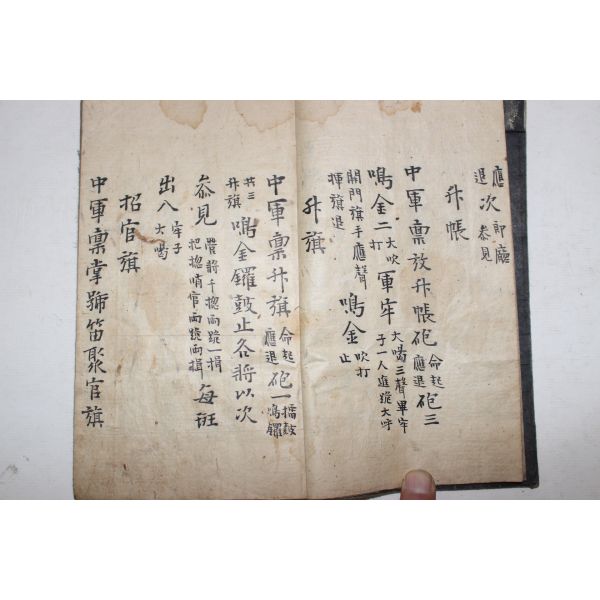 應退次 即廳 叅見
升帳
中軍稟放升帳砲 命起 應退 砲三
鳴金二 大吹打 軍牢 大喝三聲畢牢子一人進跪大呼
開門旗手應聲揮旗退 鳴金 吹打止
升旗
中軍稟升旗 命起 應退 砲一 擂鼓 鳴鑼
共三 升旗 鳴金鑼鼓止各將以次
叅見 千摠兩跪一揖 把摠哨官兩跪兩揖 每班
出入 牢子 大喝
招官旗
中軍稟掌號笛聚官旗